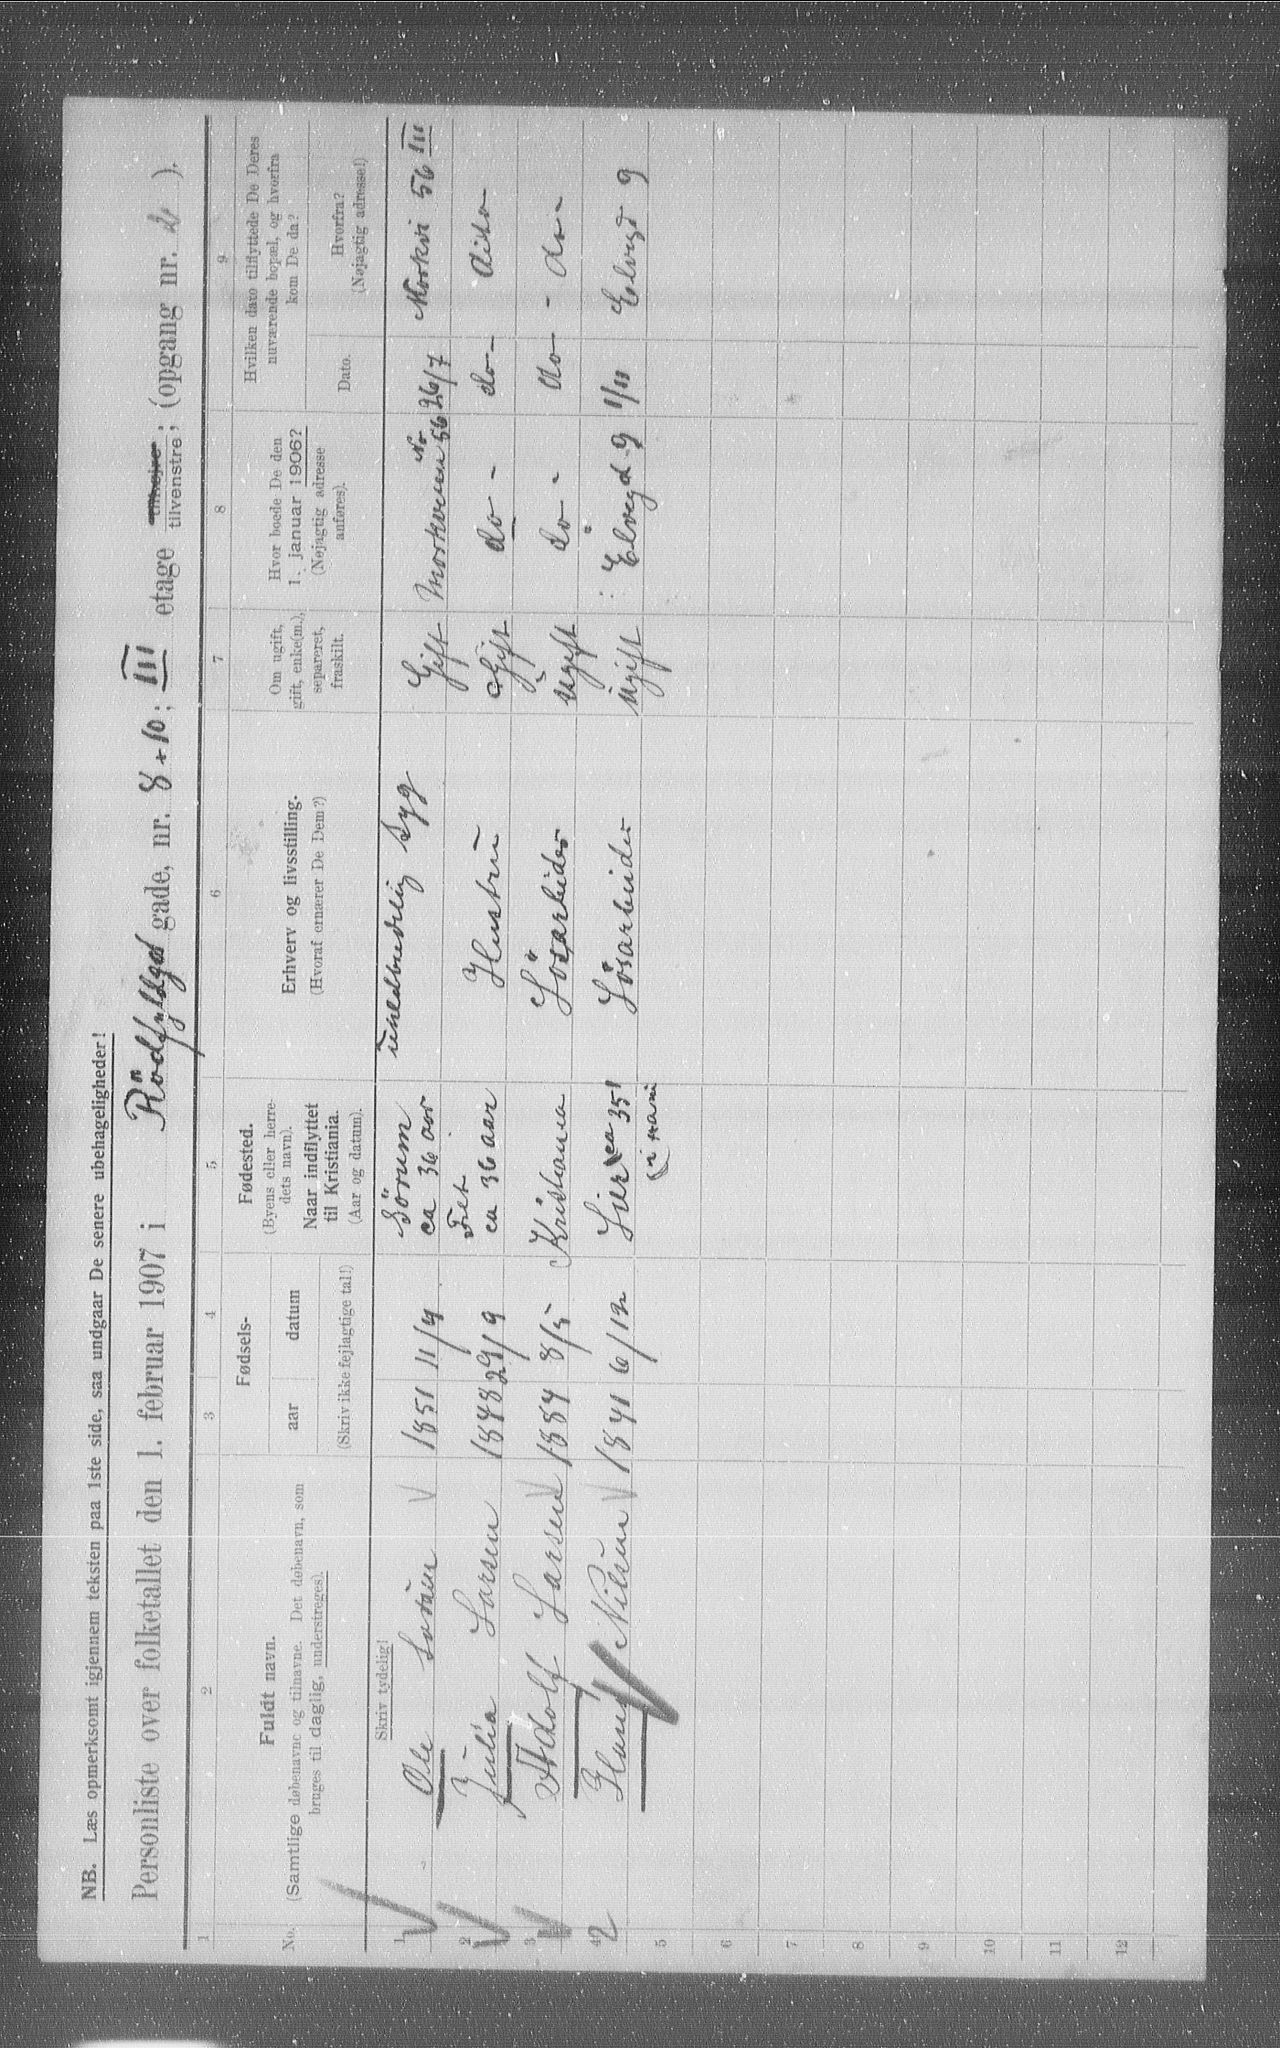 NB. Læs opmerksomt igjennem teksten paa 1ste side, saa undgaar De senere ubehageligheder!
Personliste over folketallet den 1. februar 1907 i Rödfyldgd gade, nr. 8+10; III etage tilhøjre tilvenstre; (opgang nr. 2).
1 2 3 4 5 6 7 8 9
No. Fuldt navn.
(Samtlige døbenavne og tilnavne. Det døbenavn, som
bruges til daglig, understreges).
Fødsels-
aar datum
(Skriv ikke fejlagtige tal!)
Fødested.
(Byens eller herre-
dets navn).
Naar indflyttet
til Kristiania.
(Aar og datum).
Erhverv og livsstilling.
(Hvoraf ernærer De Dem?)
Om ugift,
gift, enke(m.),
separeret,
fraskilt.
Hvor boede De den
1. januar 1906?
(Nøjagtig adresse
anføres).
Hvilken dato tilflyttede De Deres
nuværende bopæl, og hvorfra
kom De da?
Dato. Hvorfra?
(Nøjagtig adresse!)
Skriv tydelig!
1 Ole 1851 11/4 Sörum ca 36 aar syg Gift No 56 26/7 56 III
2 Julia Larsen 1848 29/9 Fet ca 36 aar Hustru Gift do - do - dito
3 Adolf Larsen 1884 8/5 Kristiania Lösarbeider Ugift do - do - do -
4 2 Hans Nilsen 1841 6/12 Lier ca 35 Lösarbeider Ugift Elvegd 9 1/11 Elvegd 9
5
6
7
8
9
10
11
12